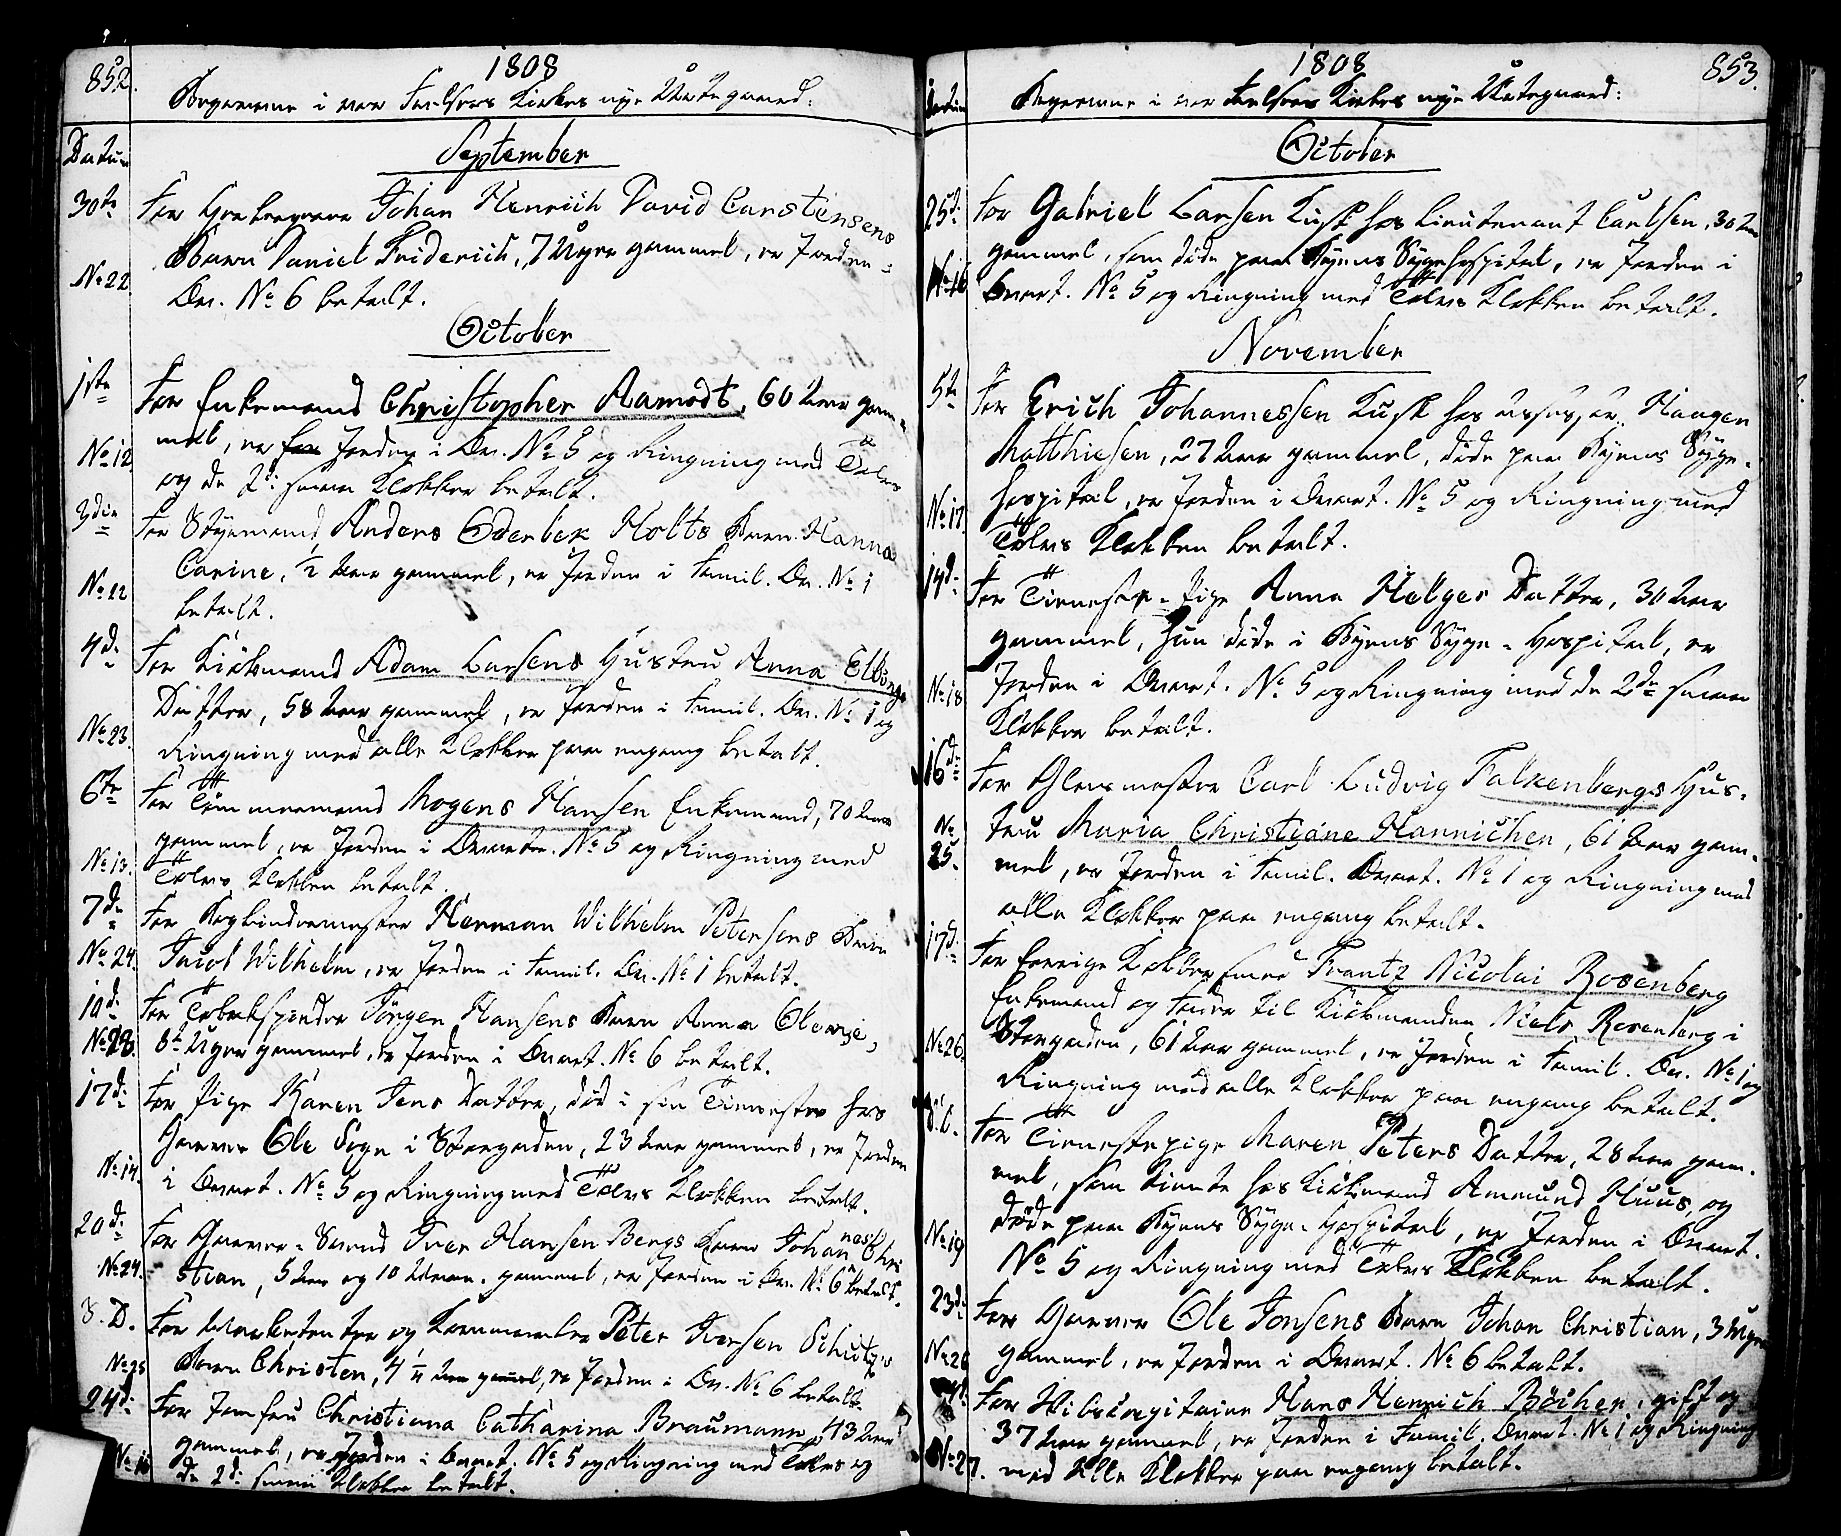 852.
1808
Begravne i vor Frelsers Kirkes nye Urtegaard:
Datum
September
30te For Grovbrenner Johan Henrich David Carstensens
Barn Daniel Friderich, 7 Uger gammel, er Jorden i
No 22 Qv. No 6 betalt.
October
1ste For Enkemand Christopher Aamodt, 60 Aar gam-
mel, er Jorden i Qv. No 5 og Ringning med Tolvs
No 12 og de 2de smaa Klokker betalt.
3die For Styrmand Anders Oderbek Holts Barn Hanna
Carine, 1/2 Aar gammel, er Jorden i Famil. Qv. No 1
No 22 betalt.
4de For Kiöbmand Adam Larsens Hustru Anna Elling
Datter, 58 Aar gammel, er Jorden i Famil. Qv. No 1 og
No 23. Ringning med alle Klokker paa engang betalt.
6te For Tömmermand Mogens Hansen Enkemand, 70 Aar
gammel, er Jorden i Qvarter. No 5 og Ringning med
No 13. Tolvs Klokken betalt.
7de For Bogbindermester Herman Wilhelm Petersens Barn
No 24. Jacob Wilhelm, er Jorden i Famil. Qv. No 1 betalt.
10de For Tobakspinder Jörgen Hansens Barn Anna Olavie,
No 23. 8te Uger gammel, er Jorden i Qvart. No 6 betalt.
17de For Pige Karen Jens Datter, död i sin Tieneste hos
Garver Ole Sogn i Storgaden, 23 Aar gammel, er Jorden
No 14. i Qvart. No 5 og Ringning med Tolvs Klokken betalt.
20de For Garver-Svend Iver Hansen Bergs Barn Johannes Chri
No 24. stian, 5 Aar og 10 Maan. gammel, er Jorden i Qv. No 6 betalt.
S. D. For Marketenter og Peter Iversen Schützes
No 25 Barn Christen, 4 1/2 Aar gammel, er Jorden i Qv. No 6 betalt.
24de For Jomfru Christiana Catharina Braumann, 43 Aar
gammel, er Jorden i Qvart. No 5 og Ringning med Tolvs og
No 15 de 2de smaa Klokker betalt.
853.
1808
Datum Begravne i vor Frelsers Kirkes nye Urtegaard:
October
25de For Gabriel Larsen Kusk hos Lieutenant Carlsen, 30 Aar
gammel, som döde paa Byens Sygehospital, er Jorden i
No 16 Qvart. No 5 og Ringning med Tolvs Klokken betalt.
November
5te For Erich Johannessen Kusk hos Assessor Haagen
Matthiesen, 27 Aar gammel, döde paa Byens Syge-
No 17 hospital, er Jorden i Qvart. No 5 og Ringning med
Tolvs Klokken betalt.
14de For Tieneste-Pige Anna Helges Datter, 30 Aar
gammel, hun döde i Byens Syge-Hospital, er
No 18 Jorden i Qvart. No 5 og Ringning med de 2de smaa
Klokker betalt.
16de For Glarmester Carl Ludvig Falkenbergs Hus-
No 25. tru Maria Christiane Hannichen, 61 Aar gam-
mel, er Jorden i Famil. Qvart. No 1 og Ringning med
alle Klokker paa engang betalt.
17de For forrige Kobbersmed Frantz Nicolai Rosenberg
Enkemand og Fader til Kiöbmanden Niels Rosenberg i
No 26. Storgaden, 61 Aar gammel, er Jorden i Famil. Qv. No 1 og
Ringning med alle Klokker paa engang betalt.
S. D. For Tienestepige Maren Peters Datter, 28 Aar gam-
mel, som tiente hos Kiöbmand Ammund Huus, og
No 19 döde paa Byens Syge-Hospital, er Jorden i Qvart.
No 5 og Ringning med Tolvs Klokken betalt.
23de For Garver Ole Jonsens Barn Johan Christian, 3 Uger
No 26 gammel, er Jorden i Qvart. No 6 betalt.
For Hans Henrich Böcher, gift og
37 Aar gammel, er Jorden i Famil. Qvart. No 1 og Ringning
No 27. med alle Klokker paa engang betalt.